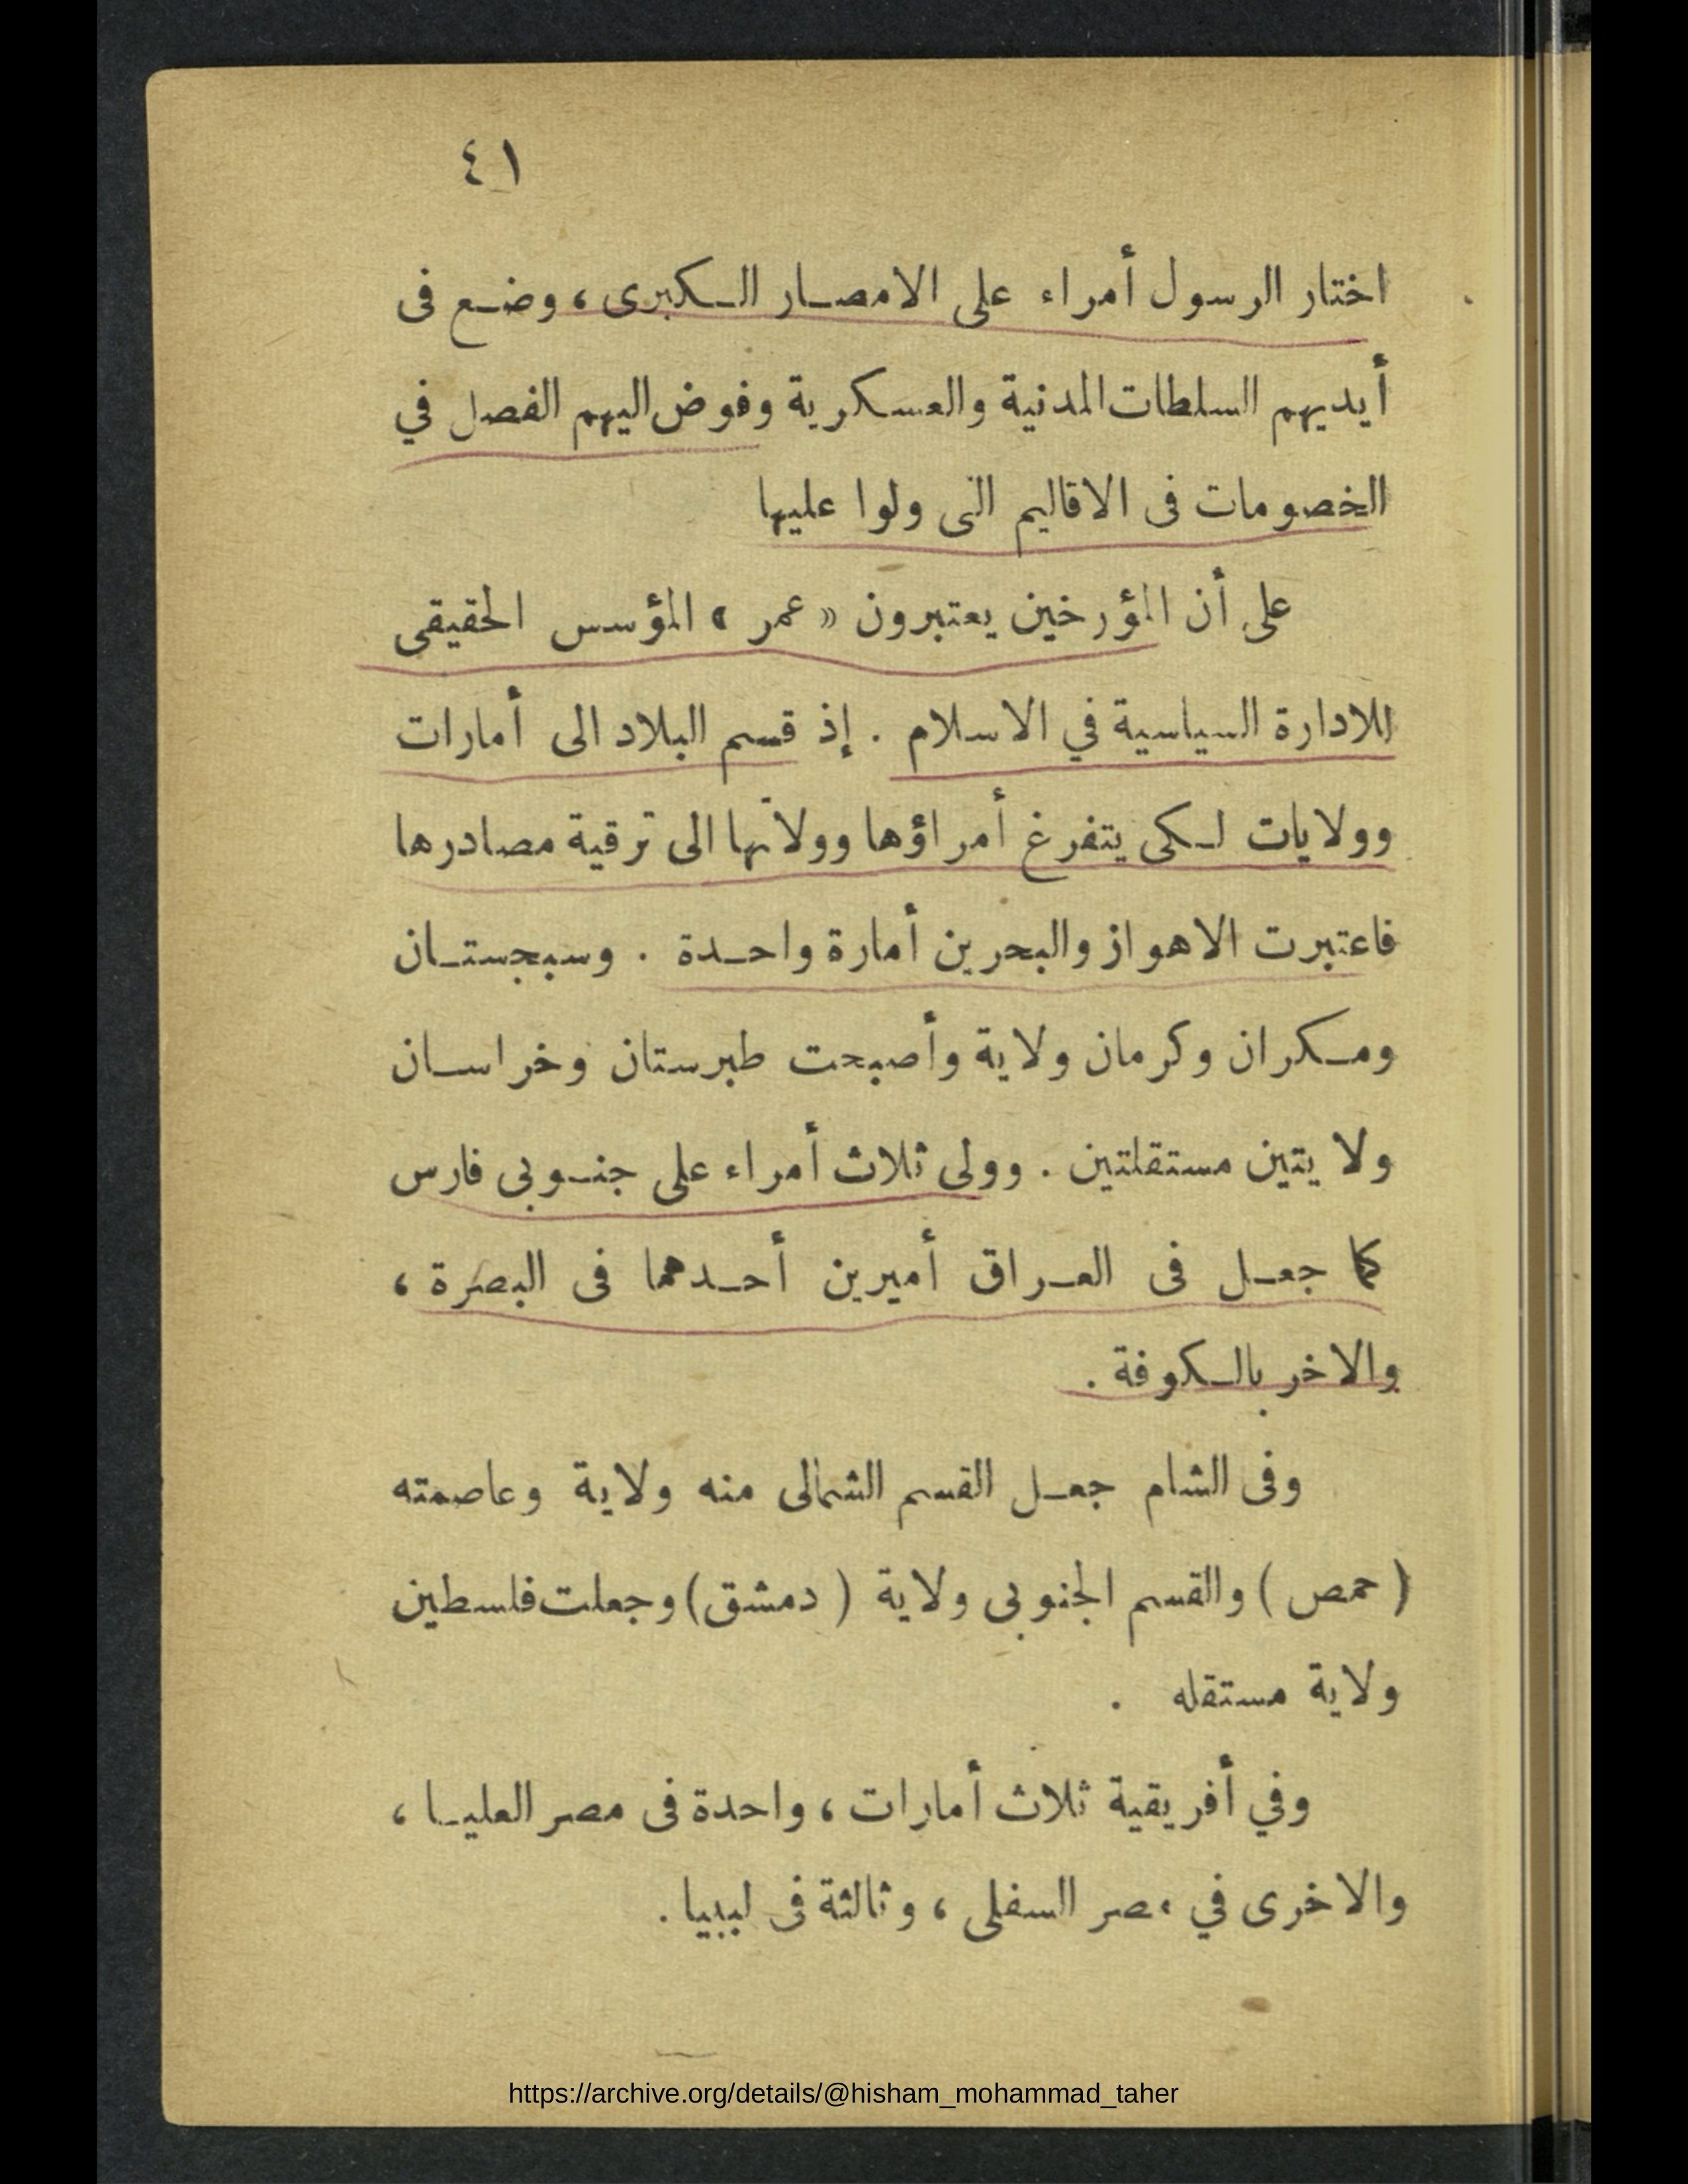 ٤١
اختار الرسول أمراء على الامصار الكبرى ، وضع فى
أيديهم السلطات المدنية والعسكرية وفوض اليهم الفصل في
الخصومات فى الاقاليم التى ولوا عليها
على أن المؤرخين يعتبرون « عمر » المؤسس الحقيقى
للادارة السياسية في الاسلام . إذ قسم البلاد الى أمارات
وولايات لكى يتفرغ أمراؤها وولاتها الى ترقية مصادرها
فاعتبرت الاهواز والبحرين أمارة واحدة . وسبجستان
ومكران وكرمان ولاية وأصبحت طبرستان وخراسان
ولا يتين مستقلتين . وولى ثلاث أمراء على جنوبى فارس
كما جعل فى العراق أميرين أحدهما فى البصرة ،
والاخر بالكوفة .
وفى الشام جعل القسم الشمالى منه ولاية وعاصمته
( حمص ) والقسم الجنوبى ولاية ( دمشق ) وجعلت فلسطين
ولاية مستقله .
وفي أفريقية ثلاث أمارات ، واحدة فى مصر العليا ،
والاخرى في مصر السفلى ، وثالثة فى ليبيا .
https://archive.org/details/@hisham_mohammad_taher